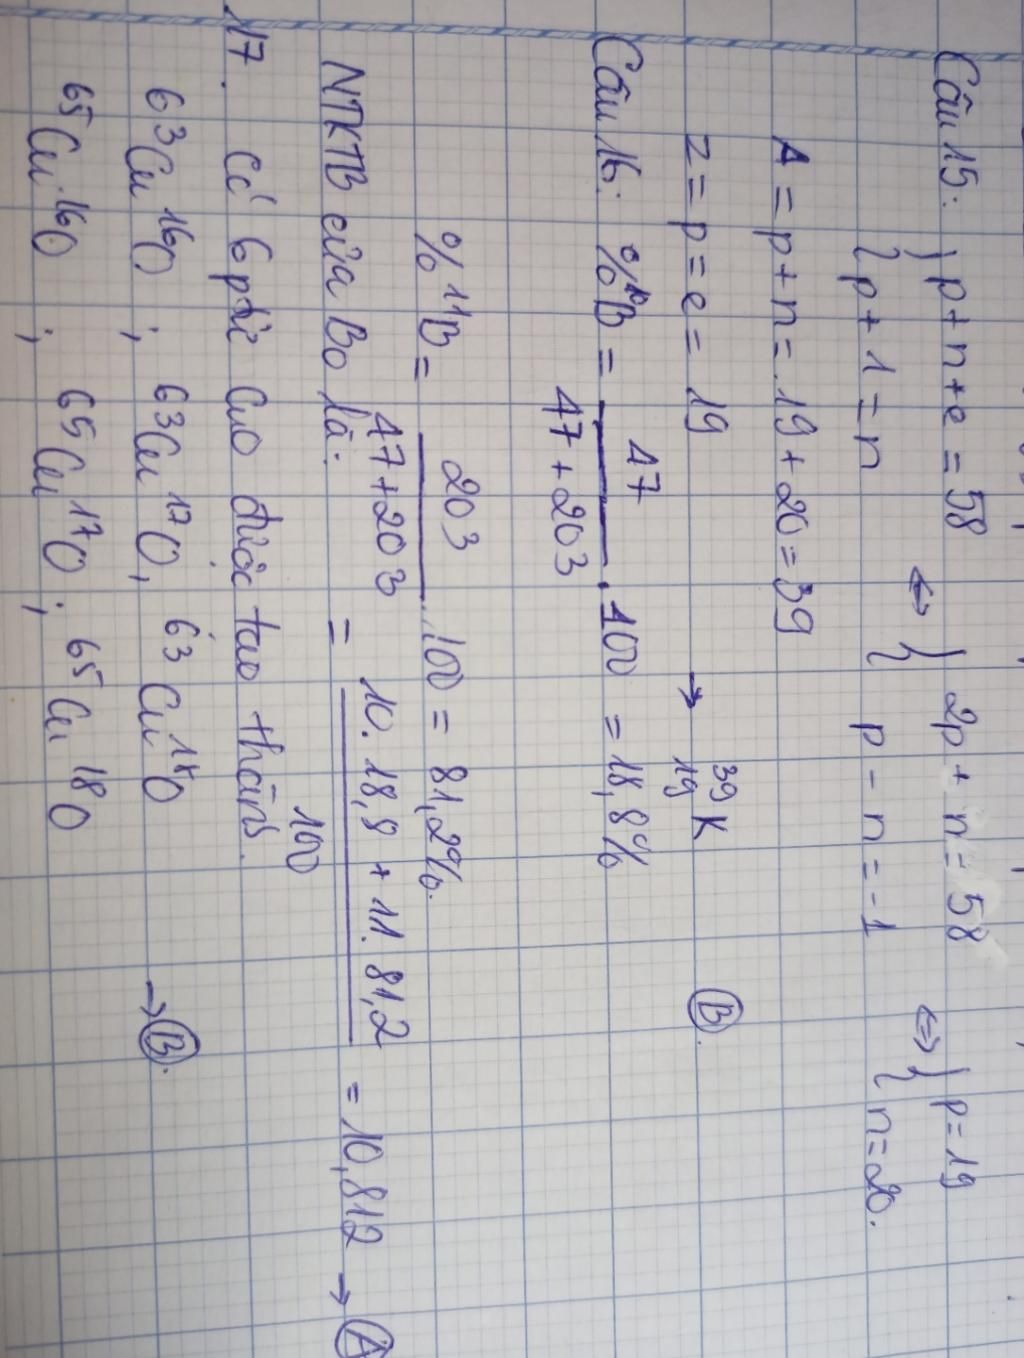 Câu 15: { p + n + e = 58 ⇔ { 2p + n = 58 ⇔ { p = 19
p + 1 = n p - n = -1 n = 20.
A = p + n = 19 + 20 = 39
Z = p = e = 19 → ³⁹₁₉K (B).
Câu 16: % ¹⁰B = 47 / 47 + 203 . 100 = 18,8%
% ¹¹B = 203 / 47 + 203 . 100 = 81,2%.
NTKTB của Bo là: = 10. 18,8 + 11. 81,2 / 100 = 10,812 → (A)
17. Có 6 ptử CuO được tạo thành.
⁶³Cu ¹⁶O ; ⁶³Cu ¹⁷O, ⁶³Cu ¹⁸O → (B).
⁶⁵Cu ¹⁶O ; ⁶⁵Cu ¹⁷O ; ⁶⁵Cu ¹⁸O